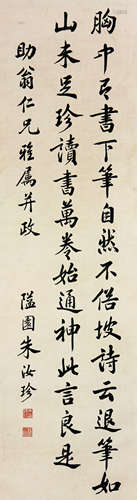 胸中有書下筆自然不俗坡詩云退筆如
山未足珍讀書萬卷始通神此言良是
助翁仁兄雅屬并政
隘園朱汝珍